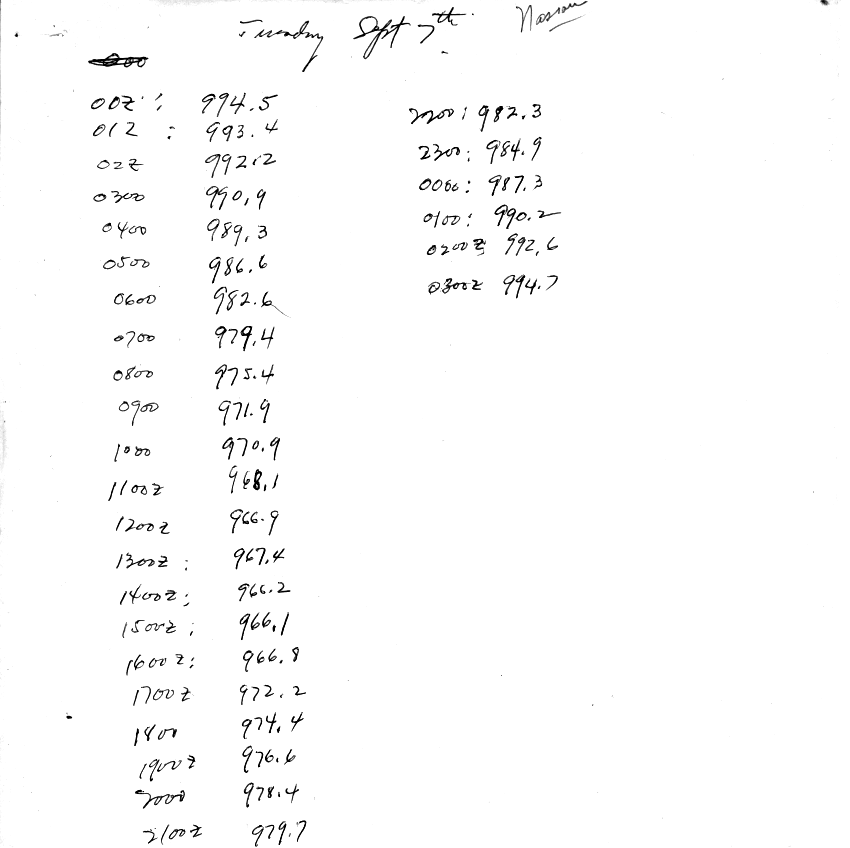 Tuesday Sept 7th. Nassau
000
00Z : 994.5
01Z : 993.4
02Z 992.2
0300 990.9
0400 989.3
0500 986.6
0600 982.6
0700 979.4
0800 975.4
0900 971.9
1000 970.9
1100Z 968.1
1200Z 966.9
1300Z : 967.4
1400Z ; 966.2
1500Z ; 966.1
1600Z : 966.8
1700Z 972.2
1800 974.4
1900Z 976.6
2000 978.4
2100Z 979.7
2200 : 982.3
2300 : 984.9
0000 : 987.3
0100 : 990.2
0200Z 992.6
0300Z 994.7